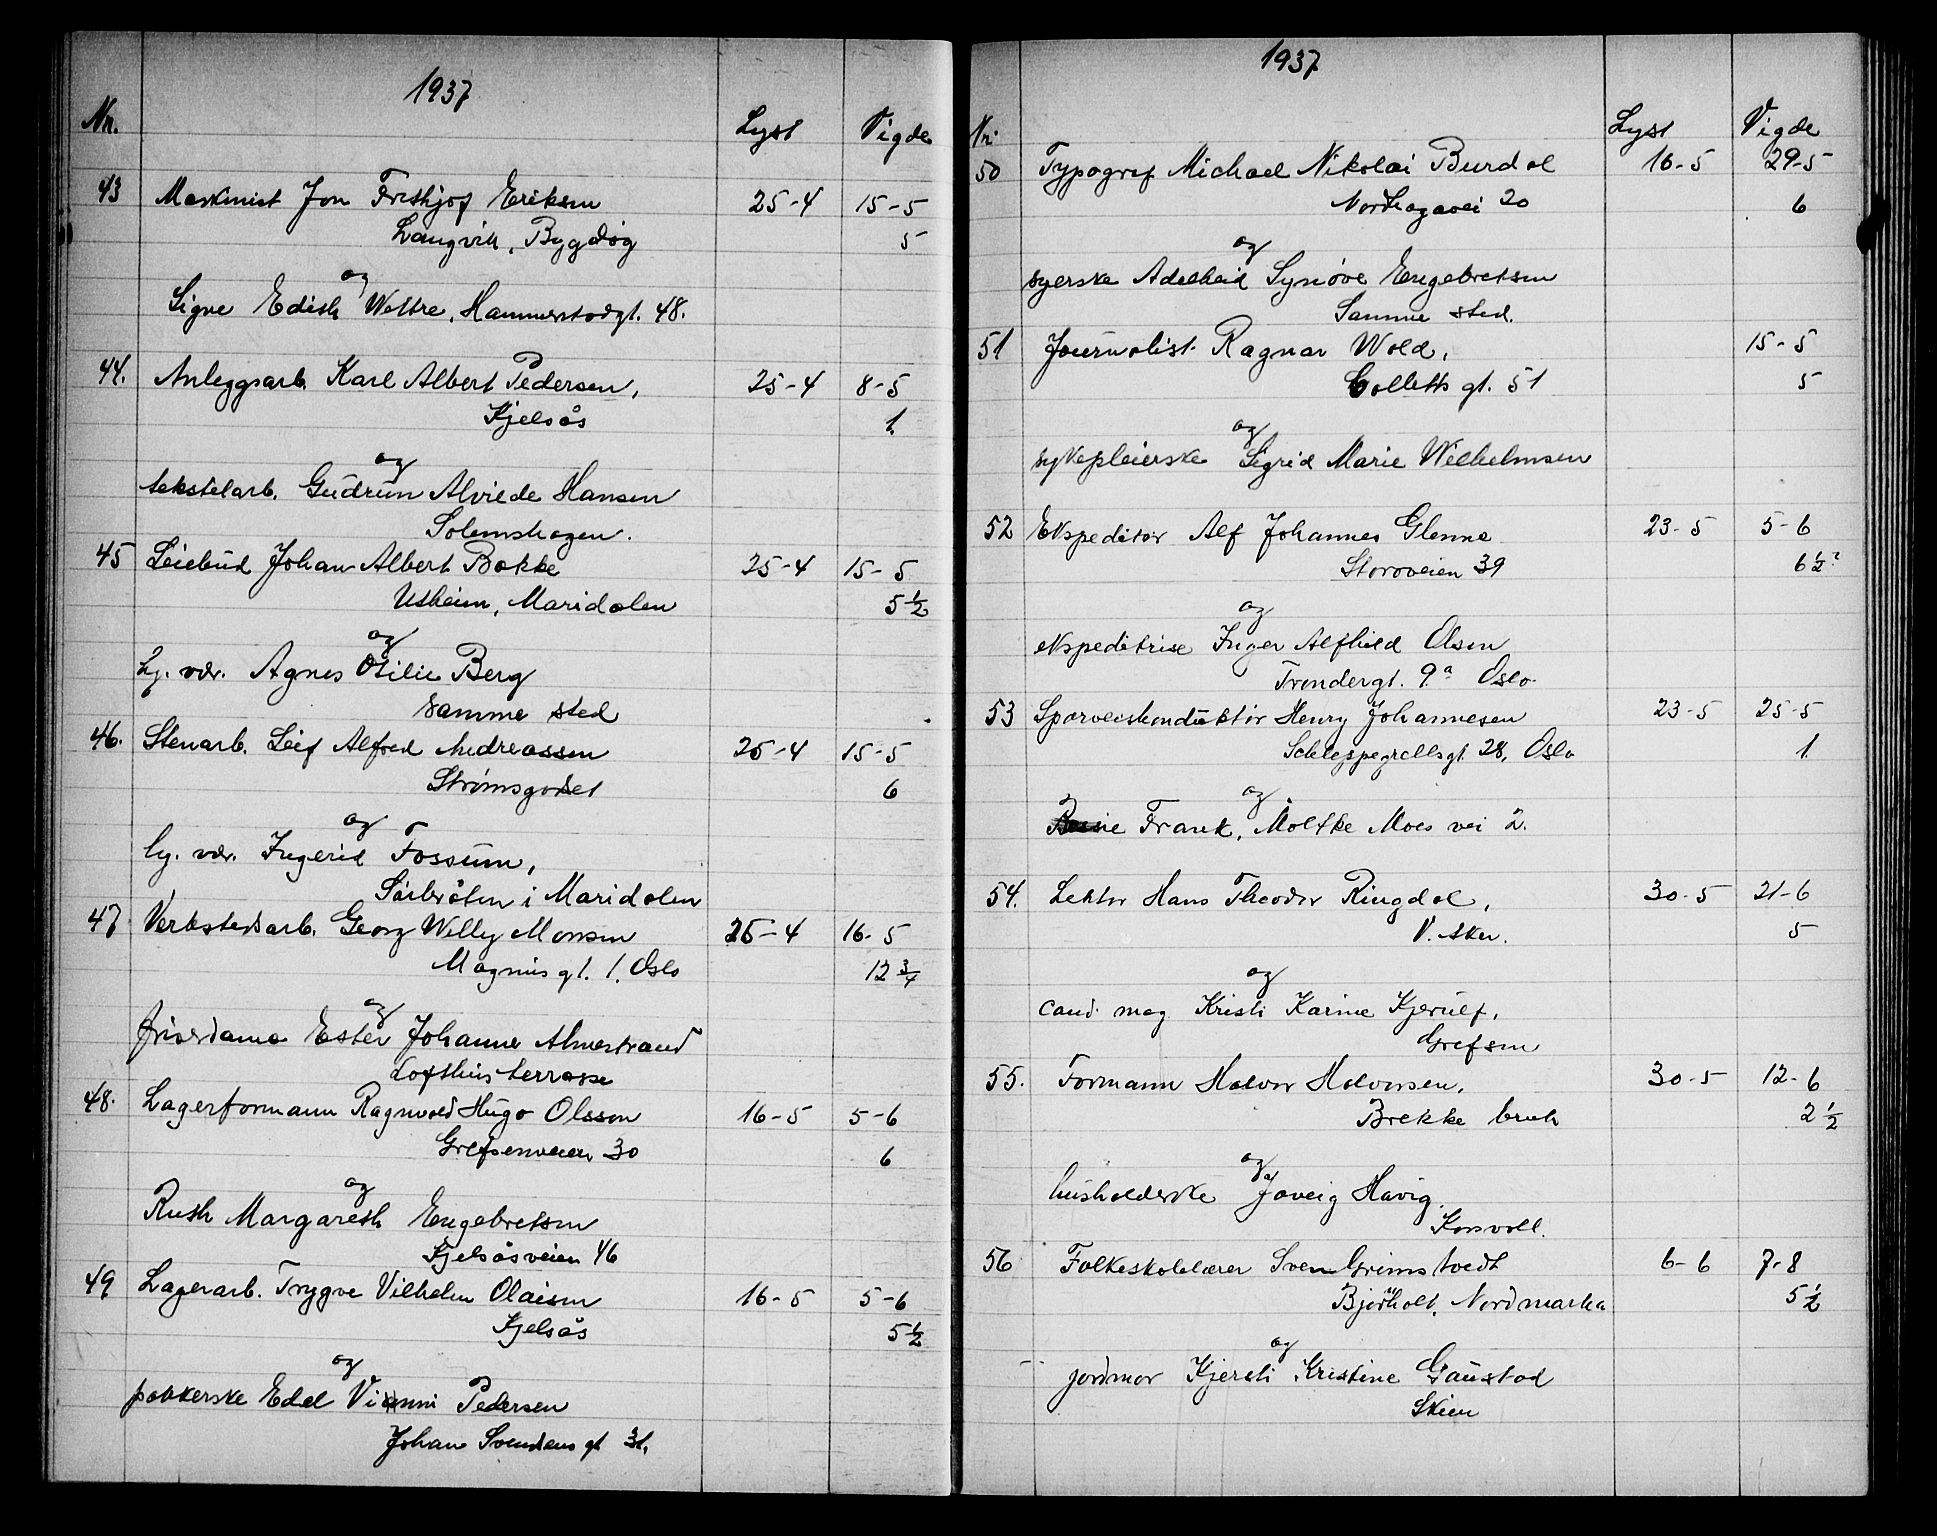 1937
Nr. Lyst Vigde
43 Maskinist Jon Frithjof Eriksen 25-4 15-5
Langvik, Bygdøy 5
og
Signe Edith Weltre, Hammerstadgt. 48.
44. Anleggsarb. Karl Albert Pedersen, 25-4 8-5
Kjelsås 1.
og
tekstilarb. Gudrun Alvilde Hansen
Solemshagen.
45 Leiebud Johan Albert Bakke 25-4 15-5
Utheim, Maridalen 5 1/2
og
hj. vær. Agnes Otilie Berg
samme sted
46. Stenarb. Leif Alfred Andreassen 25-4 15-5
Strømsgodset 6
og
hj. vær. Ingerid Fossum,
Sørbråten i Maridalen
47 Verkstedsarb. Georg Willy Monsen 25-4 16-5
Magnus gt. 1. Oslo 12 3/4
og
friserdame Ester Johanne Almestrand
Lofthus terrasse
48. Lagerformann Ragnvald Hugo Olsson 16-5 5-6
Grefsenveien 30 6
og
Ruth Margareth Engebretsen
Kjelsåsveien 46
49 Lagerarb. Trygve Vilhelm Olaisen 16-5 5-6
Kjelsås 5 1/2
og
pakkerske Edel Pedersen
Johan Svendsens gt 31.
1937
Nr. Lyst Vigde
50 Typograf Michael Nikolai Burdal 16-5 29-5
Nordhagavei 20 6
og
syerske Adelheid Synøve Engebretsen
Samme sted.
51 Journalist Ragnar Wold, 15-5
Colletts gt. 51 5
og
sykepleierske Sigrid Marie Wilhelmsen
52 Ekspeditør Alf Johannes Glenne 23-5 5-6
Storoveien 39 6 1/2?
og
ekspeditrise Inger Alfhild Olsen
Trondergt. 9a Oslo
53 Sporveiskonduktør Henry Johannesen 23-5 25-5
Schleppegrellsgt. 28, Oslo 1.
og
Frank, Moltke Moes vei 2.
54. Lektor Hans Theodor Ringdal, 30-5 21-6
V. Aker. 5
og
cand. mag Kristi Karine Kjerulf,
Grefsen
55. Formann Halvor Halvorsen, 30-5 12-6
Brekke bruk 2 1/2
og
husholderske Havig
Korsvoll.
56 Folkeskolelærer Sven Grimstvedt 6-6 7-8
Bjørnholt, Nordmarka 5 1/2
og
jordmor Kjersti Kristine Gaustad
Skien